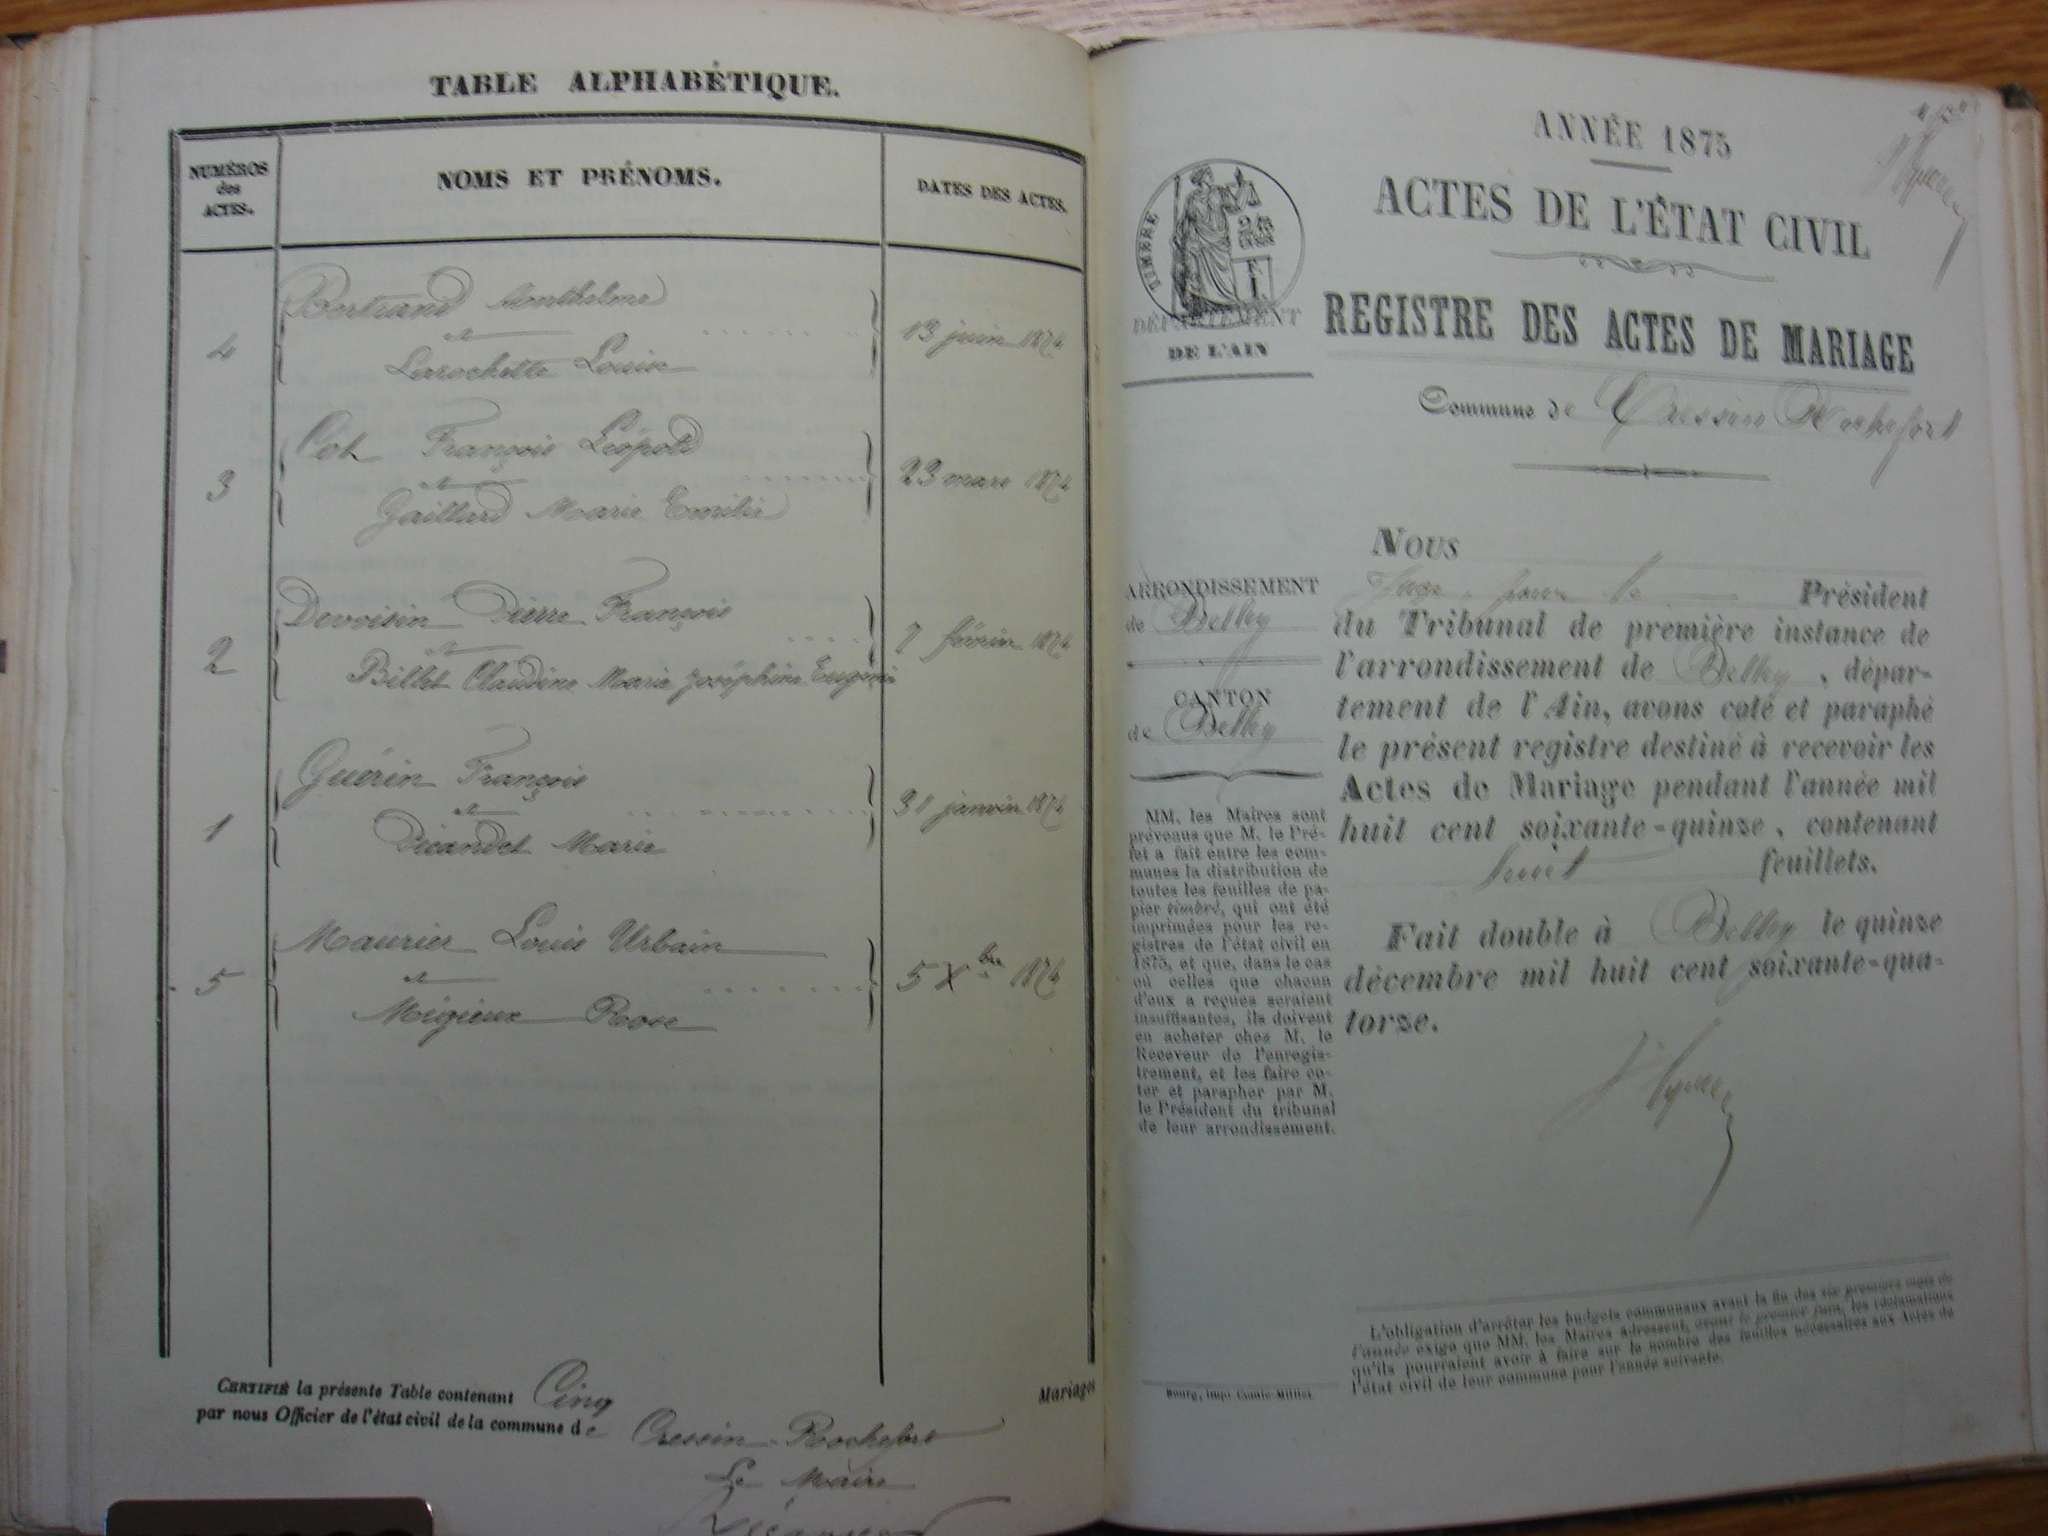 TABLE ALPHABÉTIQUE.
NUMÉROS
des
ACTES.
NOMS ET PRÉNOMS.
DATES DES ACTES.
4
Bertrand Anthelme
et
Larochette Louise
13 juin 1874
3
Cot François Léopold
et
Gaillard Marie Emilie
23 mars 1874
2
Devoisin Pierre François
et
Billet Claudine Marie Joséphine Eugénie
7 février 1874
1
Guérin François
et
Dicandet Marie
31 janvier 1874
5
Maurier Louis Urbain
et
Migieux Rose
5 Xbre 1874
CERTIFIÉ la présente Table contenant Cinq Mariages
par nous Officier de l'état civil de la commune de Cressin-Rochefort
Le Maire
ANNÉE 1875
ACTES DE L'ÉTAT CIVIL
TIMBRE
DÉPARTEMENT
DE L'AIN
REGISTRE DES ACTES DE MARIAGE
Commune de Cressin Rochefort
ARRONDISSEMENT
de Belley
CANTON
de Belley
MM. les Maires sont
prévenus que M. le Pré-
fet a fait entre les com-
munes la distribution de
toutes les feuilles de pa-
pier timbré, qui ont été
imprimées pour les re-
gistres de l'état civil en
1875, et que, dans le cas
où celles que chacun
d'eux a reçues seraient
insuffisantes, ils doivent
en acheter chez M. le
Receveur de l'enregis-
trement, et les faire co-
ter et parapher par M.
le Président du tribunal
de leur arrondissement.
Nous
Juge pour le Président
du Tribunal de première instance de
l'arrondissement de Belley, dépar-
tement de l'Ain, avons coté et paraphé
le présent registre destiné à recevoir les
Actes de Mariage pendant l'année mil
huit cent soixante-quinze, contenant
huit feuillets.
Fait double à Belley le quinze
décembre mil huit cent soixante-qua-
torze.
L'obligation d'arrêter les budgets communaux avant la fin des six premiers mois de
l'année exige que MM. les Maires adressent, avant le premier juin, les réclamations
qu'ils pourraient avoir à faire sur le nombre des feuilles nécessaires aux Actes de
l'état civil de leur commune pour l'année suivante.
Bourg, imp. Comte-Milliet